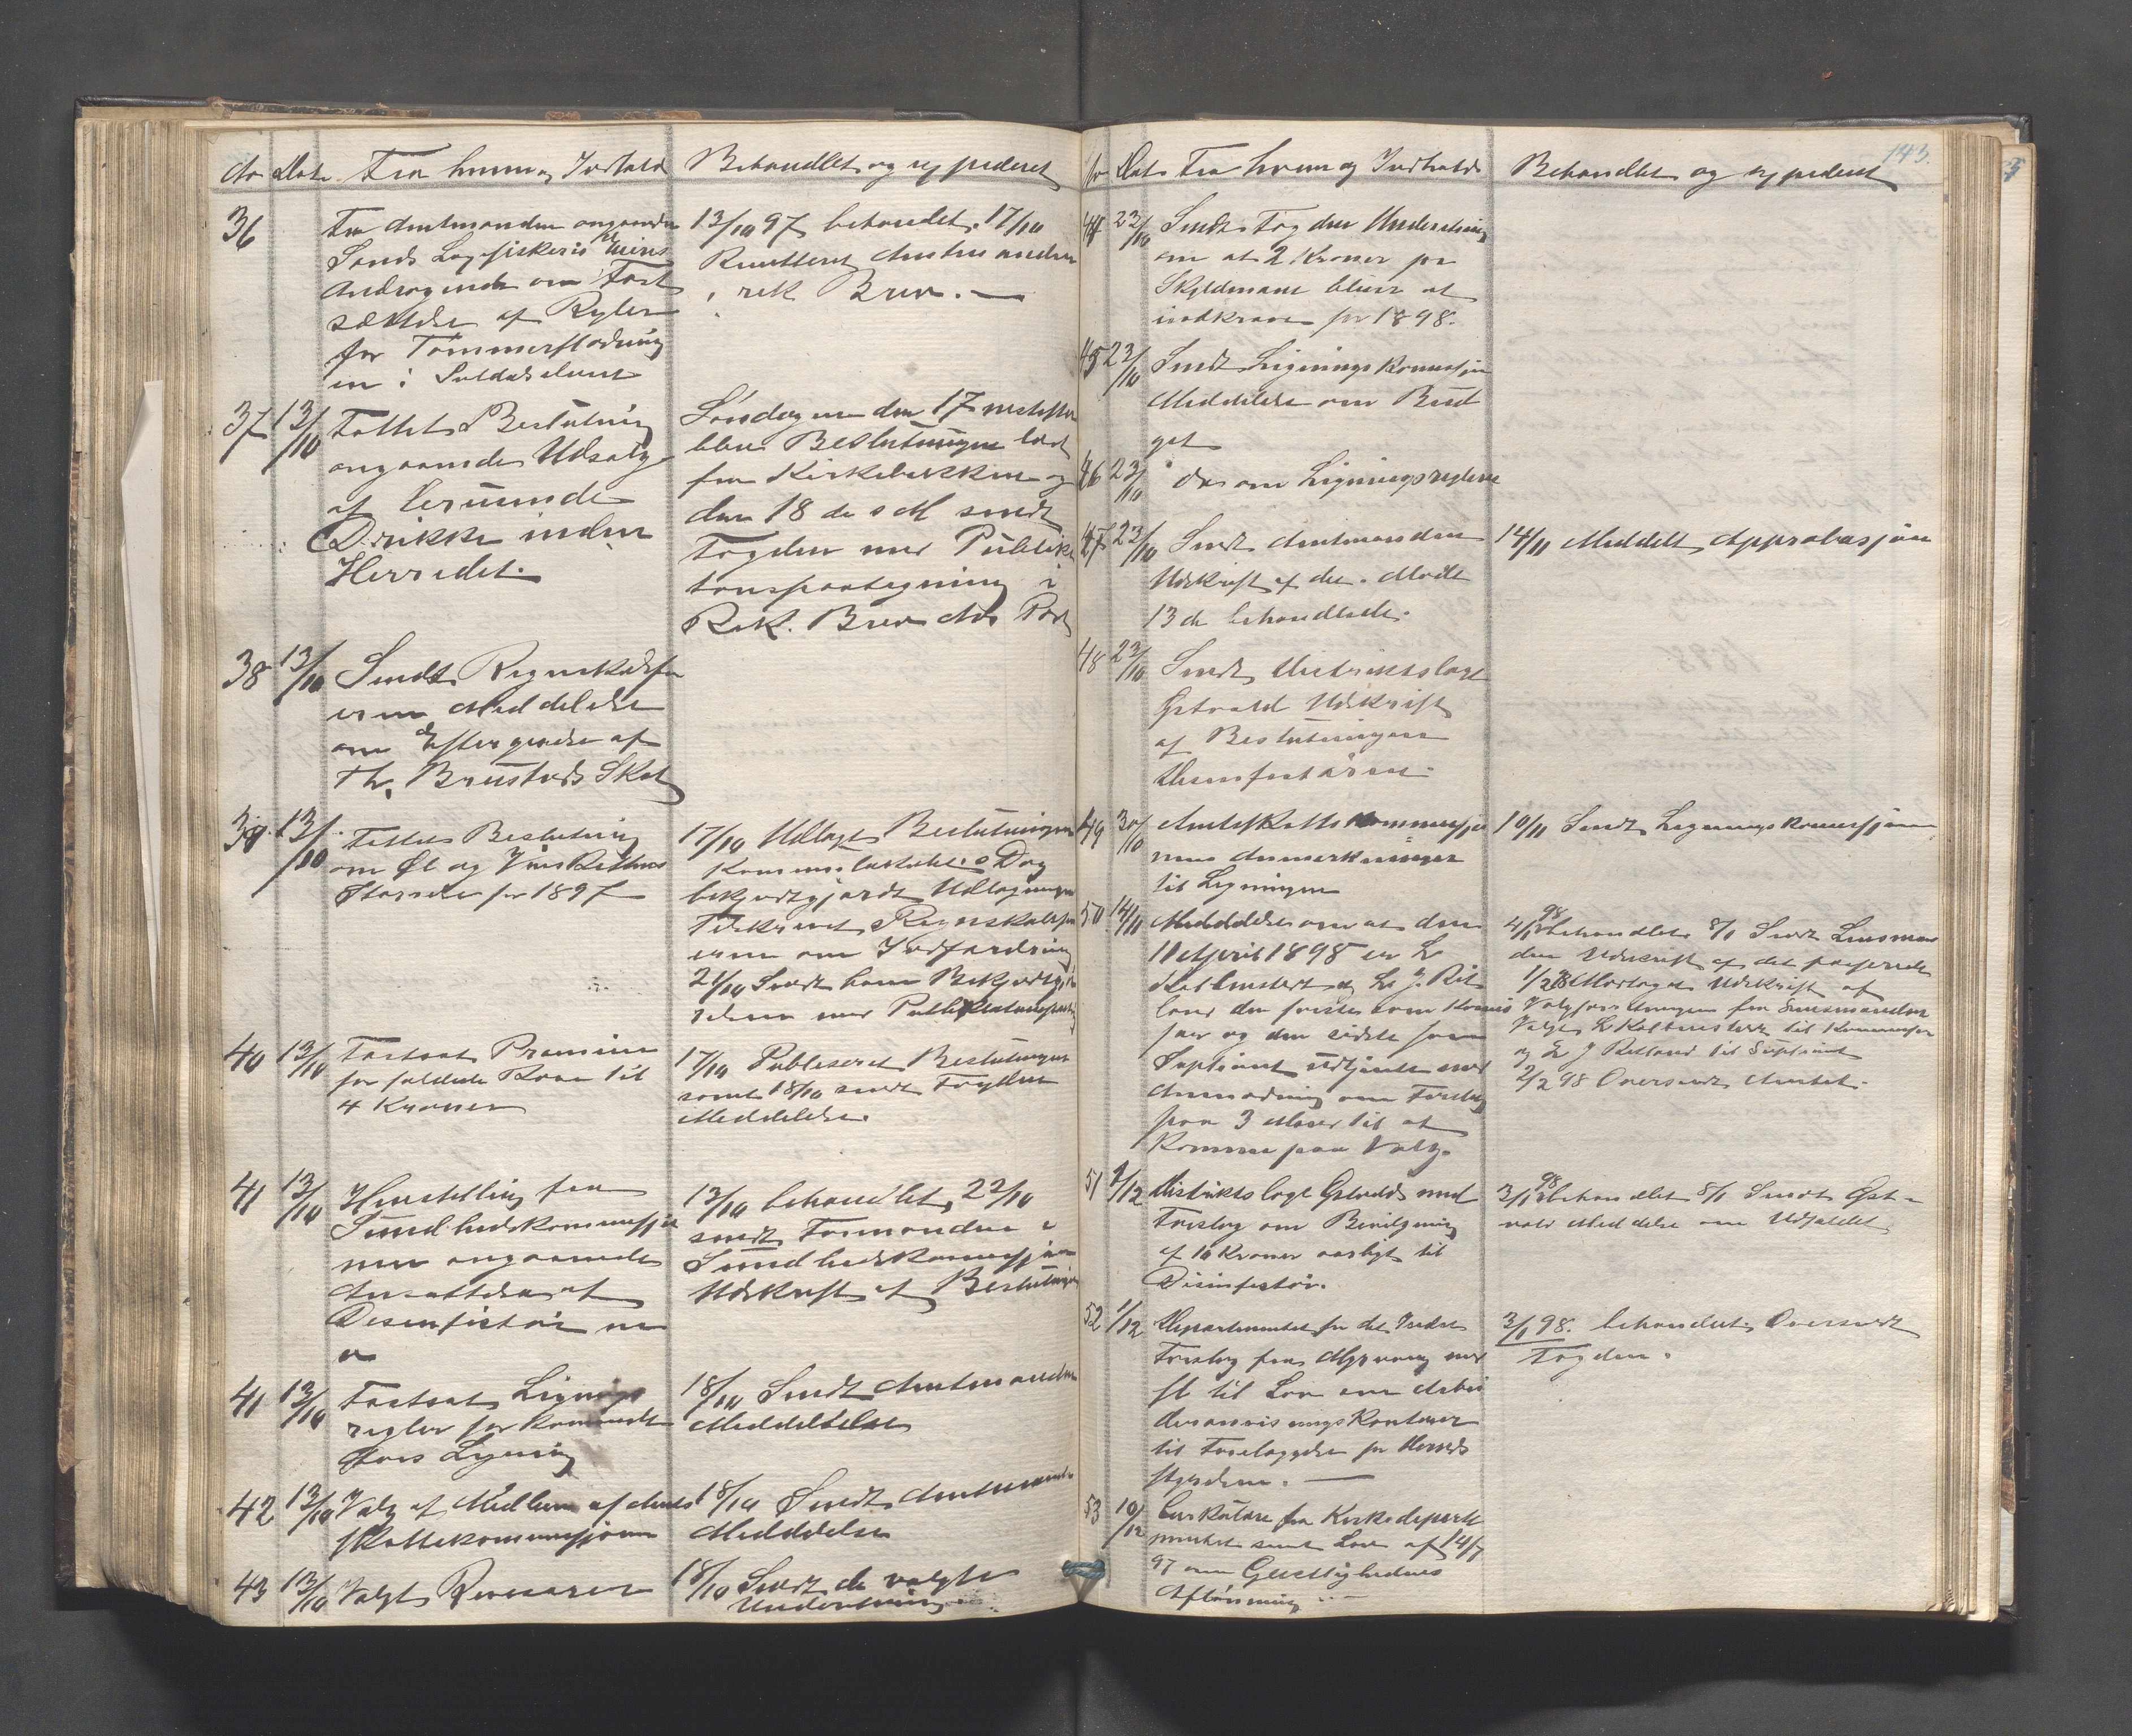 No Dat. Fra hvem og Indhold Behandlet og expederet
36 Fra Amtmanden angaaende
Sands Laxefiskeris
Andragende om Fast
sættelse af Regler
for Tømmerflødning
en i Suldalselven
13/10 97 behandlet. 17/10
Amtmanden
i rek Brev. —
37 13/10 Fattet Beslutning
angaaende Udsalg
af berusende
Drikke inden
Herredet.
Søndagen den 17
blev Beslutningen læst
fra Kirkebakken og
den 18 ds M sendt
Fogden med Publika
tionspaategning i
Rek. Brev
38 13/10 Sendt Regnskabsfø
reren Meddelelse
om Eftergivelse af
Th. Brustuds Skat
39 13/10 Fattet Beslutning
om Øl og Vinrettens
Størrelse for 1897
17/10 Udlagt Beslutningen
Dag
bekjendtgjordt Udlægningen
Tilskrevet Regnskabsfø
reren om Indfordring
21/10 Sendt ham Bekjendtgjø
relsen med
40 13/10 Fastsat Præmien
for fældede til
4 Kroner
17/10 Publiseret Beslutningen
samt 18/10 sendt Fogden
Meddelelse.
41 13/10 Henstilling fra
Sundhedskommissjo
nen angaaende
Ansættelse af
Desinfektør
13/10 behandlet, 22/10
sendt Formanden i
Sundhedskommissjonen
Udskrift af Beslutningen
41 13/10 Fastsat Lignings
regler for kommende
Aars Ligning
18/10 Sendt Amtmanden
Meddelelse
42 13/10 Valg af Medlem af Amts
skattekommissjonen
18/10 Sendt Amtmanden
Meddelelse
43 13/10 Valgt Revisorer
18/10 Sendt de valgte
Underretning
No Dat. Fra hvem og Indhold Behandlet og expederet
143.
44 23/10 Sendt Fogden Underretning
om at 2 Kroner pr
Skyldmark bliver at
indkræve for 1898.
45 23/10 Sendt Ligningskommissjon
Meddelelse om Bud
get
46 23/10 Do om Ligningsreglene
47 23/10 Sendt Amtmanden
Udskrift af det i Mødet
13de behandlede.
14/11 Meddelt Approbasjon
48 23/10 Sendt Distriktslæge
Østvold Udskrift
af Beslutningen
Desinfektøren.
49 30/10 Amtsskattekommissjo
nens Anmerkninger
til Ligningen
10/11 Sendt Ligningskommissjonen
50 14/11 Meddelelse om at den
11 April 1898 er L
og L J. Ret
land den første som Kommis
sær og den sidste som
Suppleant udtjente med
Anmodning om Forslag
paa 3 Mænd til at
komme paa Valg.
4/1 98 behandlet 8/1 Sendt Lensman
den Udskrift af det passerede
1/2 98 Modtaget Udskrift af
Valgforretningen fra Lensmanden
Valgt L Kolbeinstvedt til Kommissær
og L J Retland til Suppleant
2/2 98 Oversendt Amtet.
51 1/12 Distriktslæge Østvolds med
Forslag om Bevilgning
af 10 Kroner aarligt til
Disinfektør.
3/1 98 behandlet 8/1 Sendt Øst-
vold Meddelse om Udfaldet
52 1/12 Departementet for det Indre
Forslag fra
til Lov om Arbei
deranvisningskontorer
til Forelæggelse for Herreds
styrelsen. —
3/1 98. behandlet. Oversendt
Fogden.
53 10/12 Cirkulære fra Kirkedeparte
mentet samt Lov af 14/7
97 om Geistlighedens
Aflønning. —